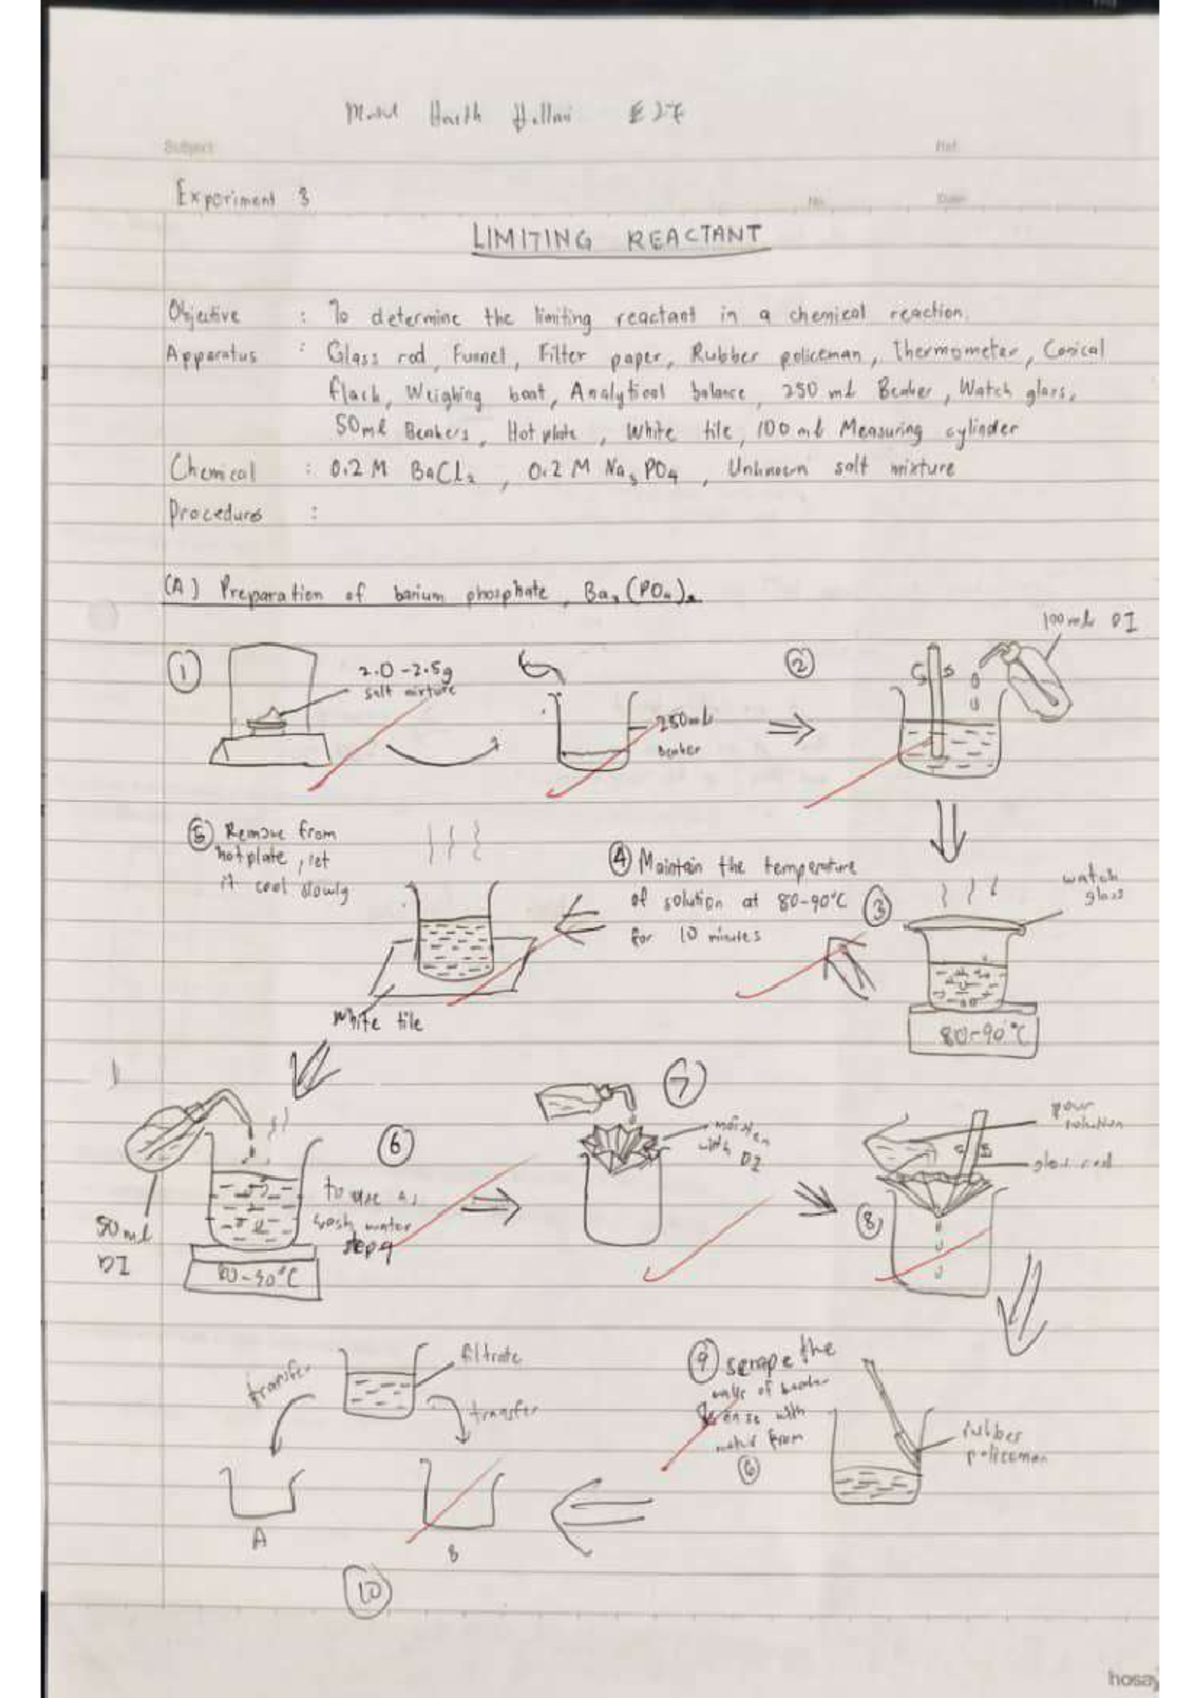 Subject
Experiment 3
No.
Date
LIMITING REACTANT
Objective : To determine the limiting reactant in a chemical reaction.
Apparatus : Glass rod, Funnel, Filter paper, Rubber policeman, Thermometer, Conical
flask, Weighing boat, Analytical balance, 250 mL Beaker, Watch glass,
50ml Beakers, Hot plate, White tile, 100 mL Measuring cylinder
Chemical : 0.2 M BaCl₂, 0.2 M Na₃PO₄, Unknown salt mixture
Procedure :
(A) Preparation of barium phosphate, Ba₃(PO₄)₂
100 mL DI
① 2.0-2.5g
salt mixture
250mL
Beaker
②
⑤ Remove from
hotplate, let
it cool slowly
④ Maintain the temperature
of solution at 80-90°C
for 10 minutes
③
watch
glass
80-90°C
White tile
50ml
DI
80-90°C
⑥
to use as
wash water
step 9
⑦
moisten
with DI
pour
solution
glass rod
⑧
transfer
filtrate
transfer
A
B
⑨ scrape the
walls of beaker
rinse with
water from
⑥
rubber
policeman
⑩